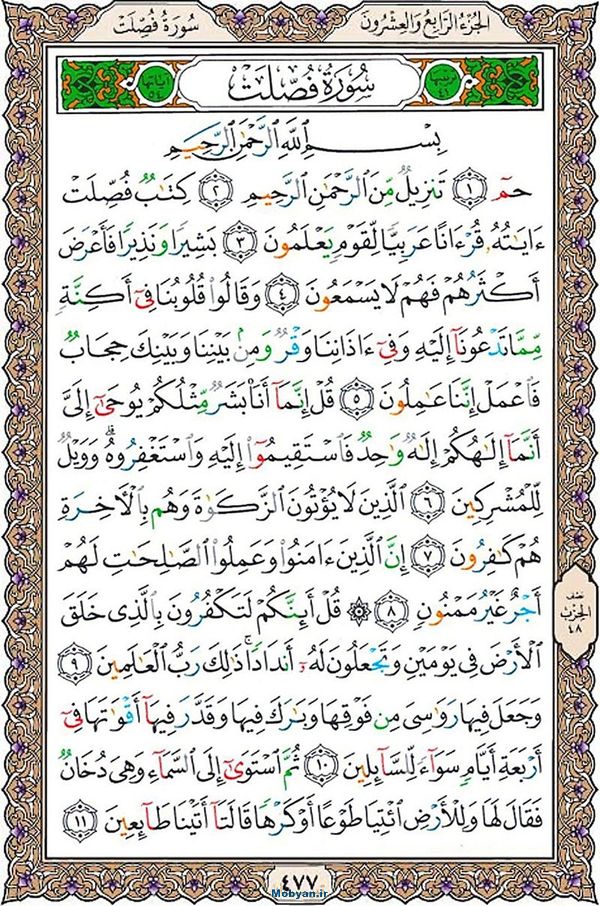 الجزء الرابع والعشرون
سورة فصلت
ترتيبها ٤١
سُورَةُ فُصِّلَتْ
آياتها ٥٤
بِسْمِ ٱللَّهِ ٱلرَّحْمَٰنِ ٱلرَّحِيمِ
حمٓ ١ تَنزِيلٌ مِّنَ ٱلرَّحْمَٰنِ ٱلرَّحِيمِ ٢ كِتَٰبٌ فُصِّلَتْ
ءَايَٰتُهُۥ قُرْءَانًا عَرَبِيًّا لِّقَوْمٍ يَعْلَمُونَ ٣ بَشِيرًا وَنَذِيرًا فَأَعْرَضَ
أَكْثَرُهُمْ فَهُمْ لَا يَسْمَعُونَ ٤ وَقَالُوا۟ قُلُوبُنَا فِىٓ أَكِنَّةٍ
مِّمَّا تَدْعُونَآ إِلَيْهِ وَفِىٓ ءَاذَانِنَا وَقْرٌ وَمِنۢ بَيْنِنَا وَبَيْنِكَ حِجَابٌ
فَٱعْمَلْ إِنَّنَا عَٰمِلُونَ ٥ قُلْ إِنَّمَآ أَنَا۠ بَشَرٌ مِّثْلُكُمْ يُوحَىٰٓ إِلَىَّ
أَنَّمَآ إِلَٰهُكُمْ إِلَٰهٌ وَٰحِدٌ فَٱسْتَقِيمُوٓا۟ إِلَيْهِ وَٱسْتَغْفِرُوهُ ۗ وَوَيْلٌ
لِّلْمُشْرِكِينَ ٦ ٱلَّذِينَ لَا يُؤْتُونَ ٱلزَّكَوٰةَ وَهُم بِٱلْءَاخِرَةِ
هُمْ كَٰفِرُونَ ٧ إِنَّ ٱلَّذِينَ ءَامَنُوا۟ وَعَمِلُوا۟ ٱلصَّٰلِحَٰتِ لَهُمْ
أَجْرٌ غَيْرُ مَمْنُونٍ ٨ ۞ قُلْ أَئِنَّكُمْ لَتَكْفُرُونَ بِٱلَّذِى خَلَقَ
ٱلْأَرْضَ فِى يَوْمَيْنِ وَتَجْعَلُونَ لَهُۥٓ أَندَادًا ۚ ذَٰلِكَ رَبُّ ٱلْعَٰلَمِينَ ٩
وَجَعَلَ فِيهَا رَوَٰسِىَ مِن فَوْقِهَا وَبَٰرَكَ فِيهَا وَقَدَّرَ فِيهَآ أَقْوَٰتَهَا فِىٓ
أَرْبَعَةِ أَيَّامٍ سَوَآءً لِّلسَّآئِلِينَ ١٠ ثُمَّ ٱسْتَوَىٰٓ إِلَى ٱلسَّمَآءِ وَهِىَ دُخَانٌ
فَقَالَ لَهَا وَلِلْأَرْضِ ٱئْتِيَا طَوْعًا أَوْ كَرْهًا قَالَتَآ أَتَيْنَا طَآئِعِينَ ١١
نصف
الحزب
٤٨
٤٧٧
Mobyan.ir